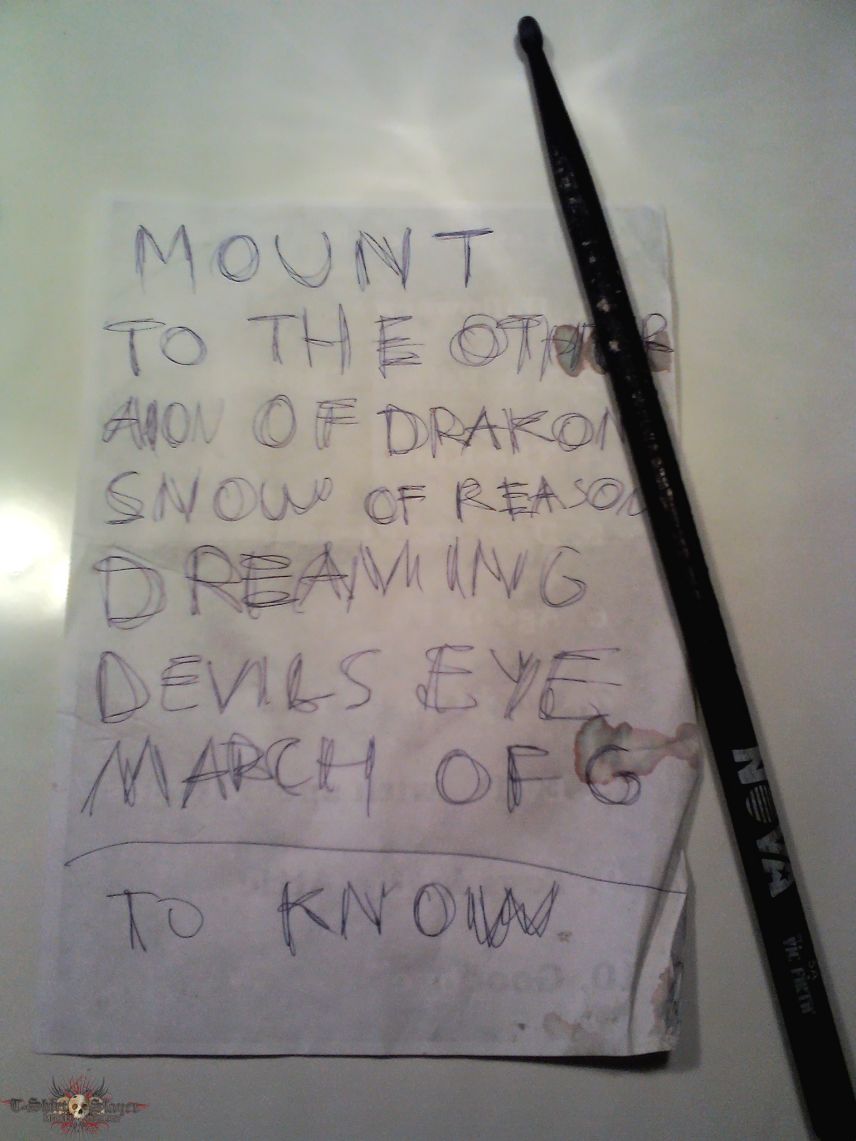 MOUNT
TO THE OTHER
AION OF DRAKON
SNOW OF REASON
DREAMING
DEVILS EYE
MARCH OF G
TO KNOW
NOVA
5A
VIC FIRTH
10. Good
T-Shirt Slayer